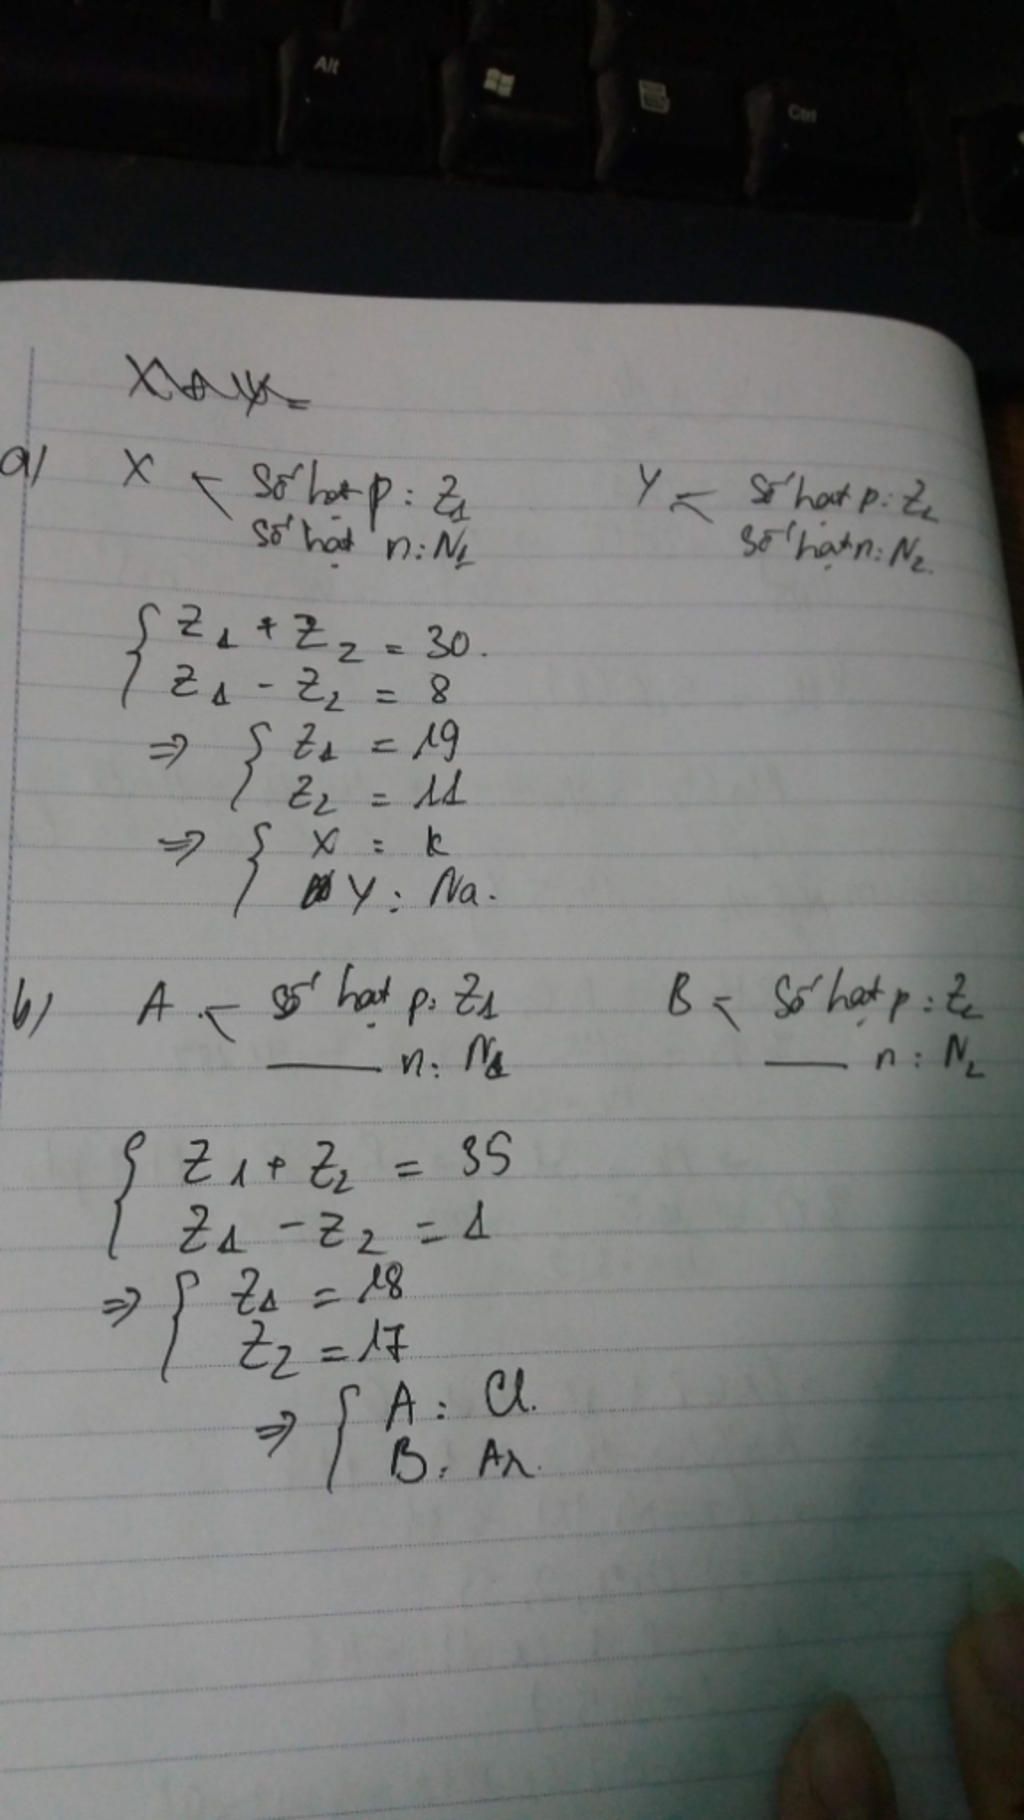 Alt
Ctrl
a) X < Số hạt p: Z1 Y < Số hạt p: Z2
Số hạt n: N1 Số hạt n: N2.
{ Z1 + Z2 = 30.
Z1 - Z2 = 8
=> { Z1 = 19
Z2 = 11
=> { X : K
Y : Na.
b) A < Số hạt p: Z1 B < Số hạt p: Z2
—— n: N1 —— n: N2
{ Z1 + Z2 = 35
Z1 - Z2 = 1
=> { Z1 = 18
Z2 = 17
=> { A : Cl.
B : Ar.